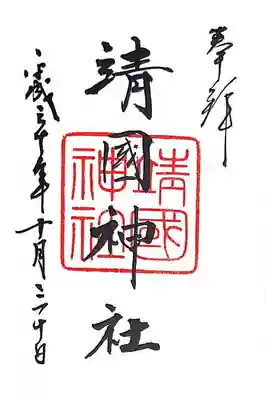 奉拝
靖國神社
靖國
神社
平成三十年十月三十日